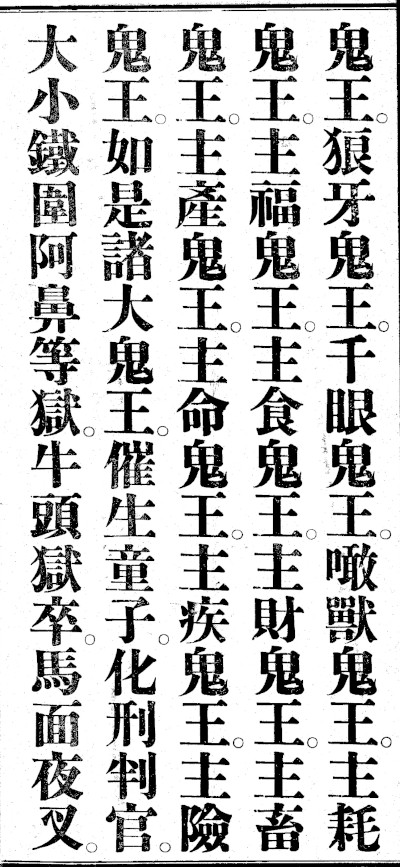 鬼王。狼牙鬼王。千眼鬼王。噉獸鬼王。主耗
鬼王。主福鬼王。主食鬼王。主財鬼王。主畜
鬼王。主產鬼王。主命鬼王。主疾鬼王。主險
鬼王。如是諸大鬼王。催生童子。化刑判官。
大小鐵圍阿鼻等獄。牛頭獄卒。馬面夜叉。